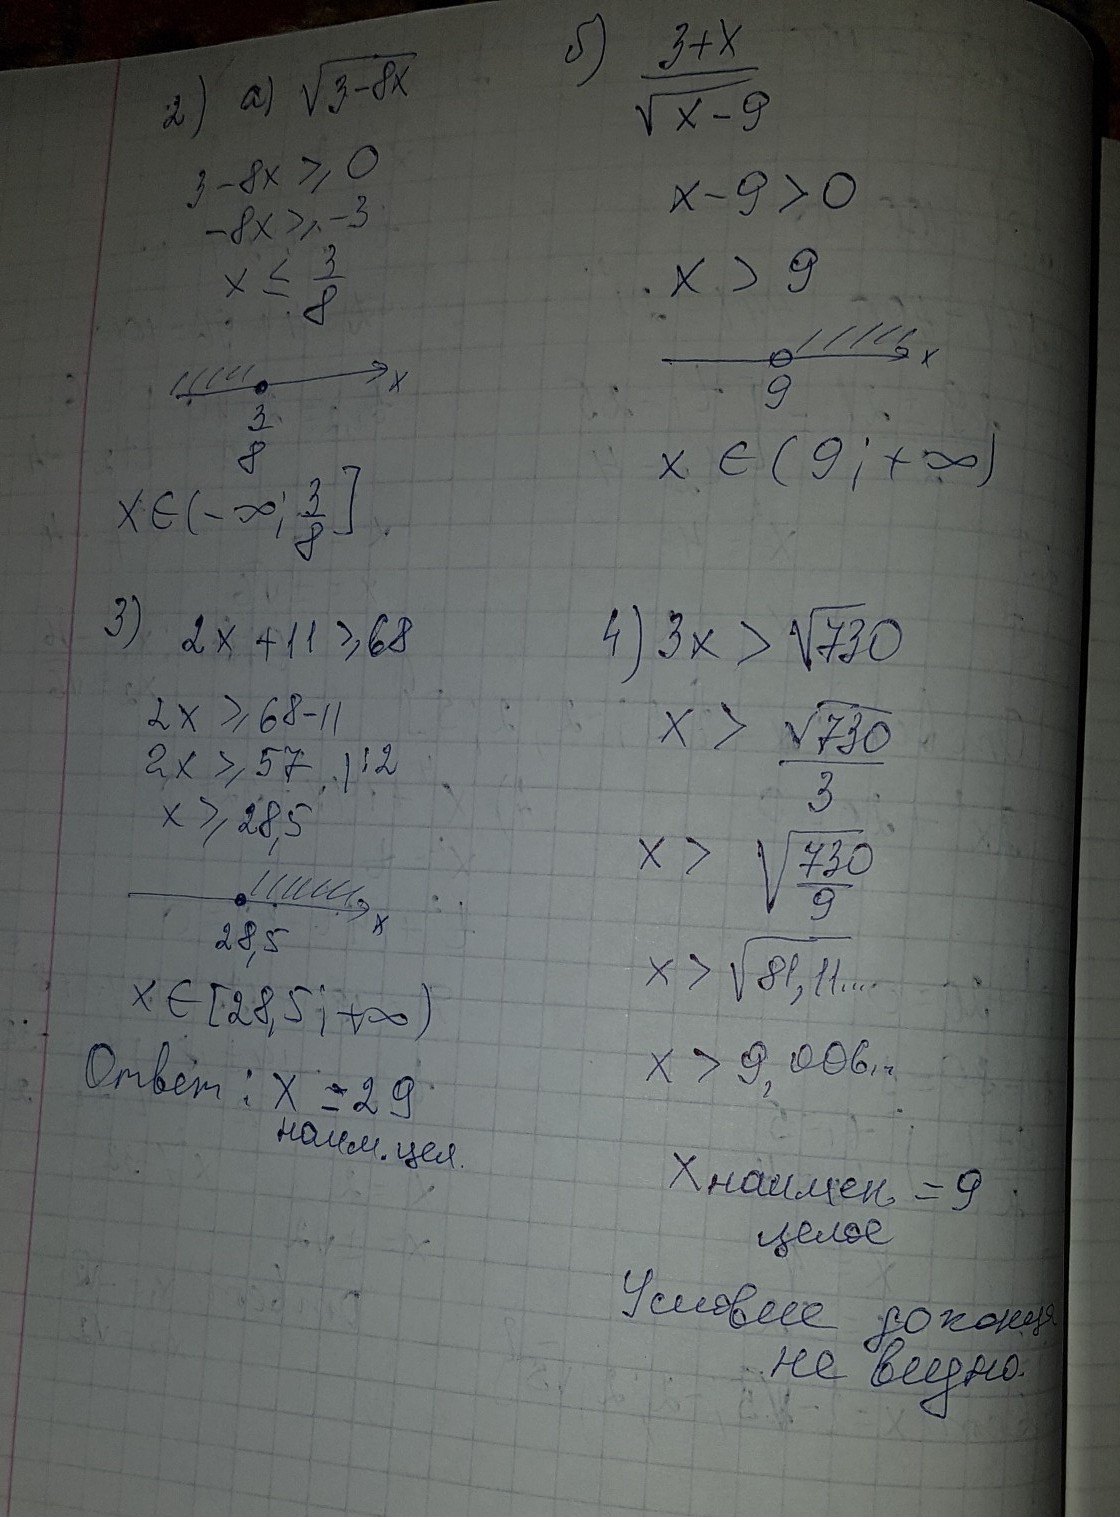 2) а) √3-8x
3-8x ≥ 0
-8x ≥ -3
x ≤ 3/8
x
3/8
x∈(-∞; 3/8]
б) 3+x/√x-9
x-9>0
x > 9
x
9
x ∈ (9; +∞)
3) 2x+11≥68
2x ≥ 68-11
2x ≥ 57 |:2
x ≥ 28,5
x
28,5
x∈[28,5; +∞)
Ответ: x = 29
наим. цел.
4) 3x > √730
x > √730/3
x > √730/9
x > √81,11...
x > 9,006...
Xнаимен. = 9
целое
Условие до конца
не видно.